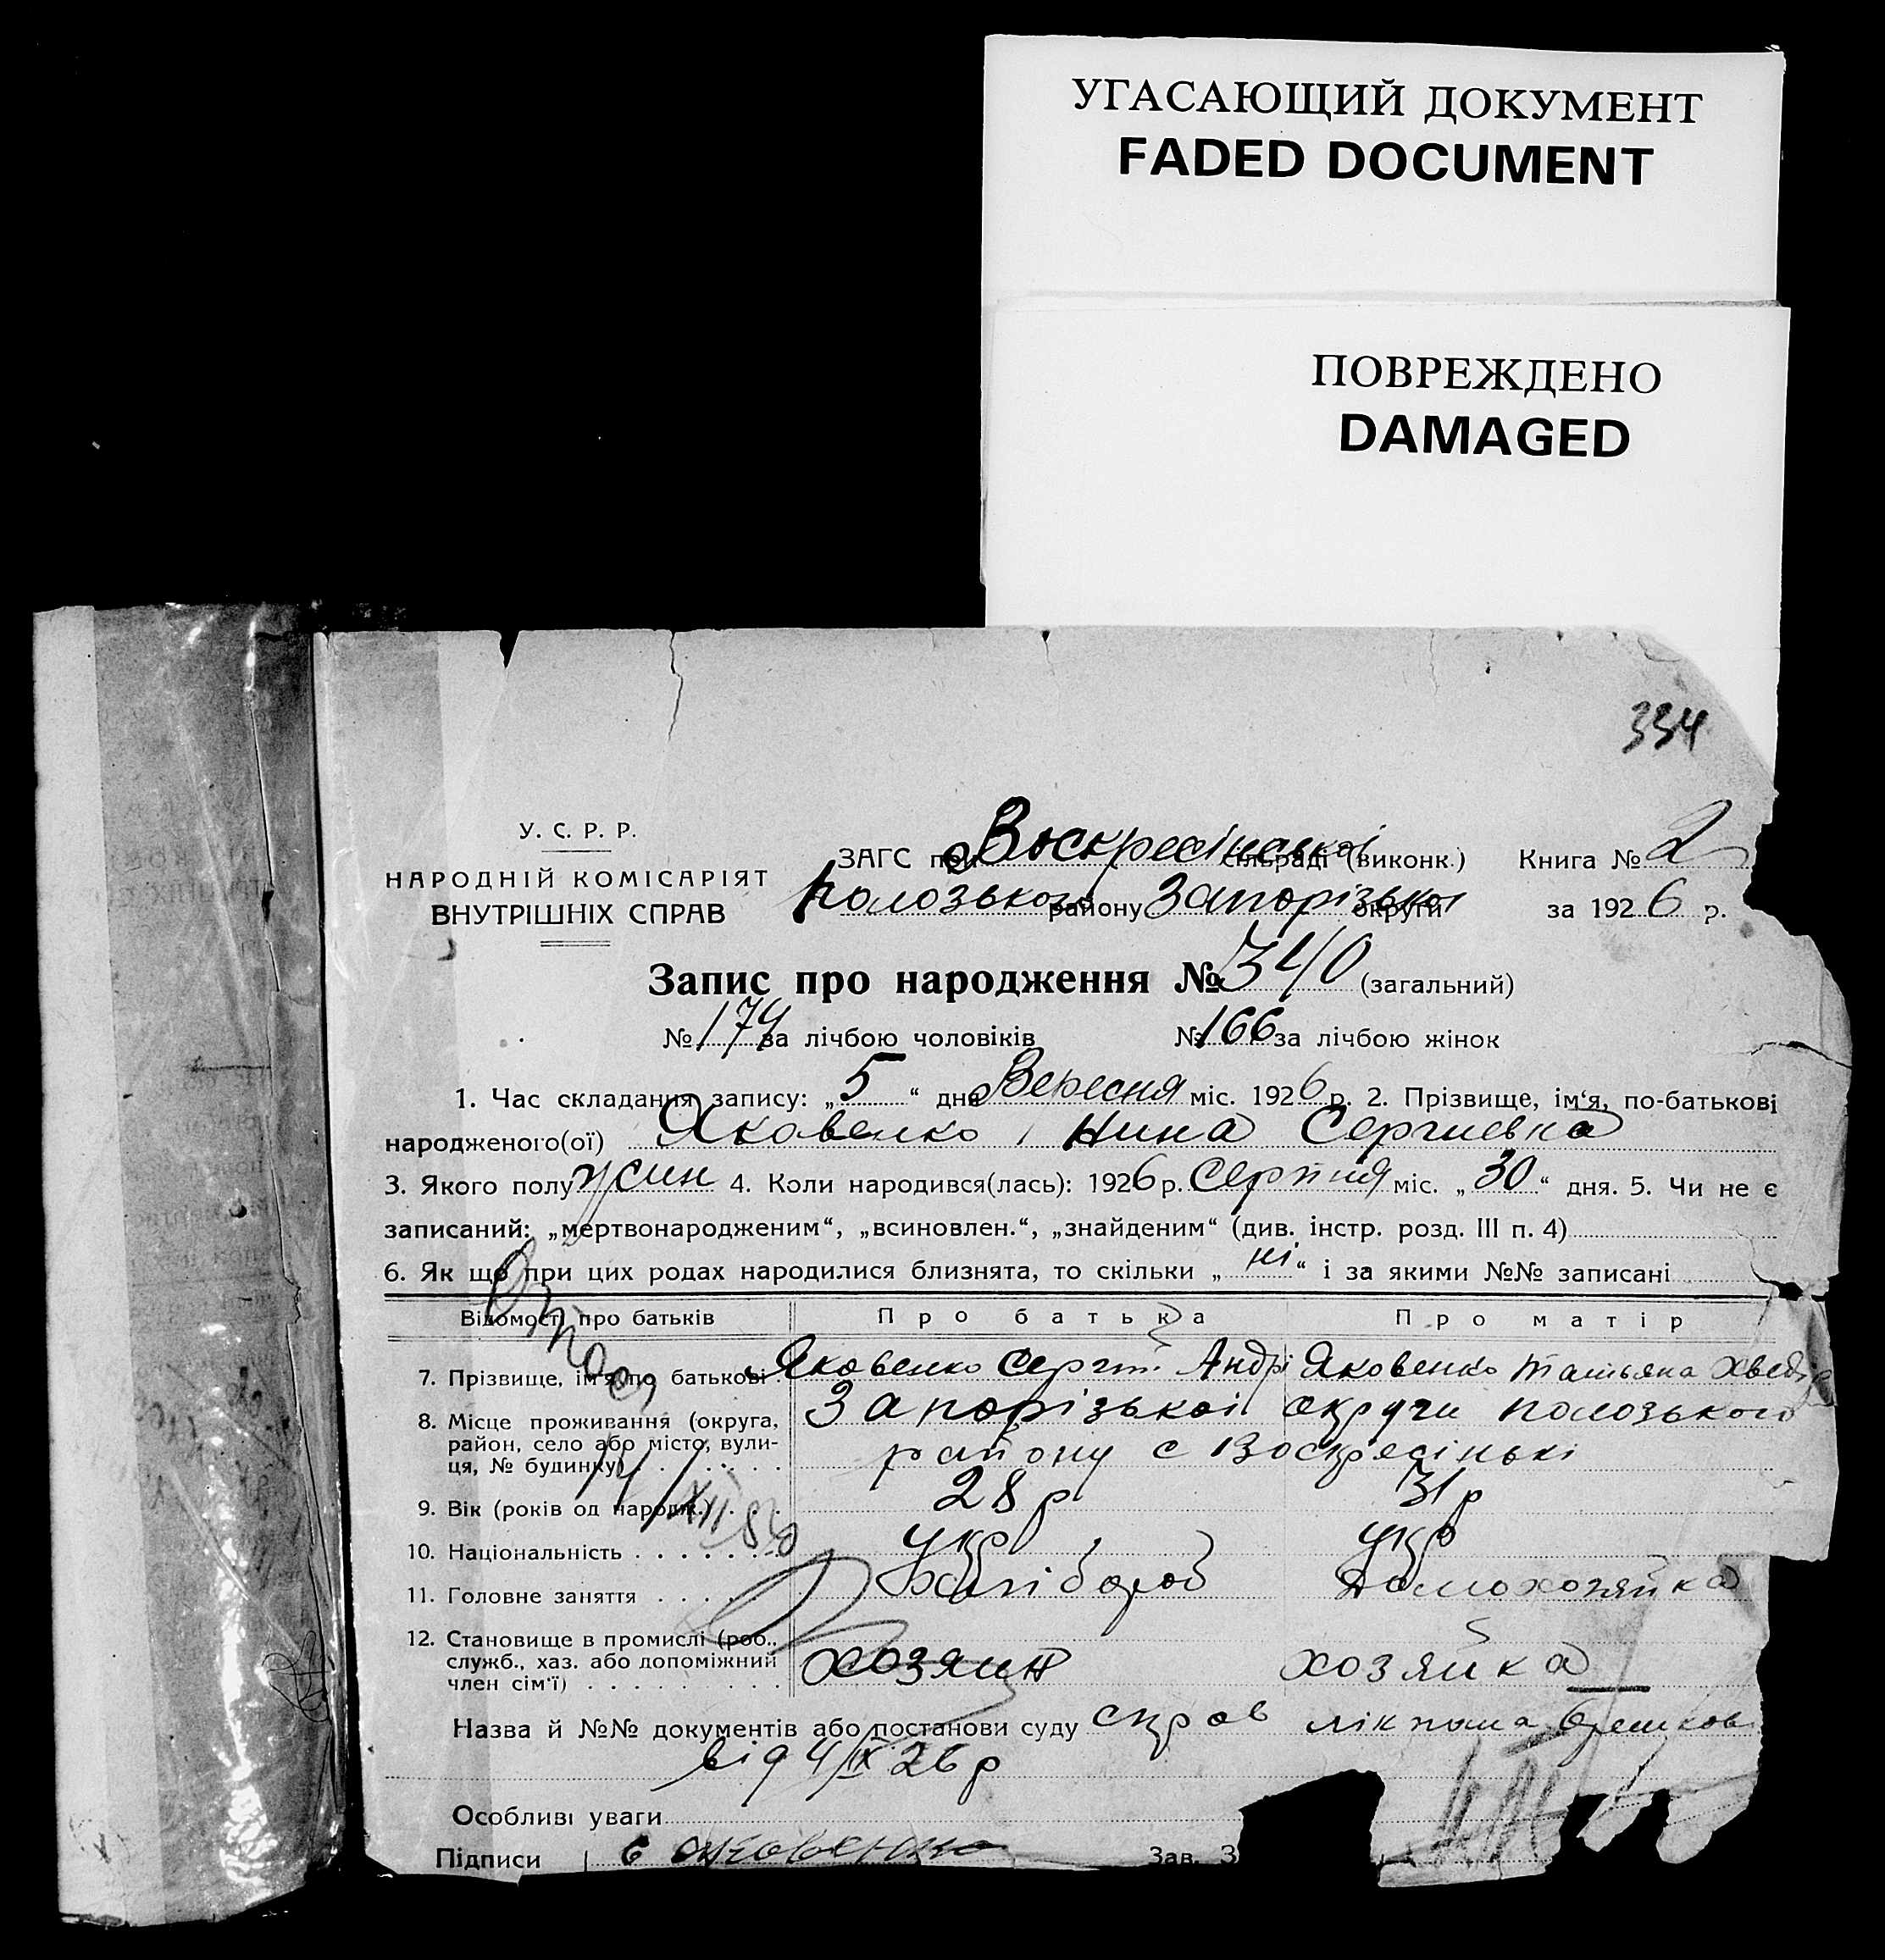 УГАСАЮЩИЙ ДОКУМЕНТ
FADED DOCUMENT
ПОВРЕЖДЕНО
DAMAGED
334
У. С. Р. Р.
НАРОДНІЙ КОМІСАРІЯТ
ВНУТРІШНІХ СПРАВ
ЗАГС при Воскресінській сільраді (виконк.) Книга № 2
Полозького району Запорізької округи за 1926 р.
Запис про народження № 340 (загальний)
№ 174 за лічбою чоловіків № 166 за лічбою жінок
1. Час складання запису: „5“ дня Вересня міс. 1926 р. 2. Прізвище, ім‘я, по-батькові
народженого(ої) Яковенко Нина Сергиевна
3. Якого полу жин 4. Коли народився(лась): 1926 р. Серпня міс. „30“ дня. 5. Чи не є
записаний: „мертвонародженим“, „всиновлен.“, „знайденим“ (див. інстр. розд. III п. 4)
6. Як що при цих родах народилися близнята, то скільки „ні“ і за якими №№ записані
Відомості про батьків Про батька Про матір
7. Прізвище, ім‘я, по батькові Яковенко Сергій Андрі Яковенко Татьяна Хведо
8. Місце проживання (округа, район, село або місто, вули- ця, № будинку) Запорізької округи Полозького
району с Воскресінькі
9. Вік (років од народж.) 28 р 31 р
10. Національність укр укр
11. Головне заняття Хлібороб Домохозяйка
12. Становище в промислі (роб., служб., хаз. або допоміжний член сім‘ї) хозяин хозяйка
Назва й №№ документів або постанови суду справ лікпома
від 4/IX 26 р
Особливі уваги
Підписи С Яковенко Зав. З